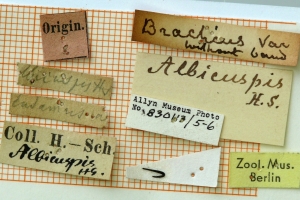 Origin.
Bracticus Var
without band
Albicuspis
H.S.
Allyn Museum Photo
No. 830117/5-6
Coll. H.–Sch
Albicuspis
HS.
Zool. Mus.
Berlin